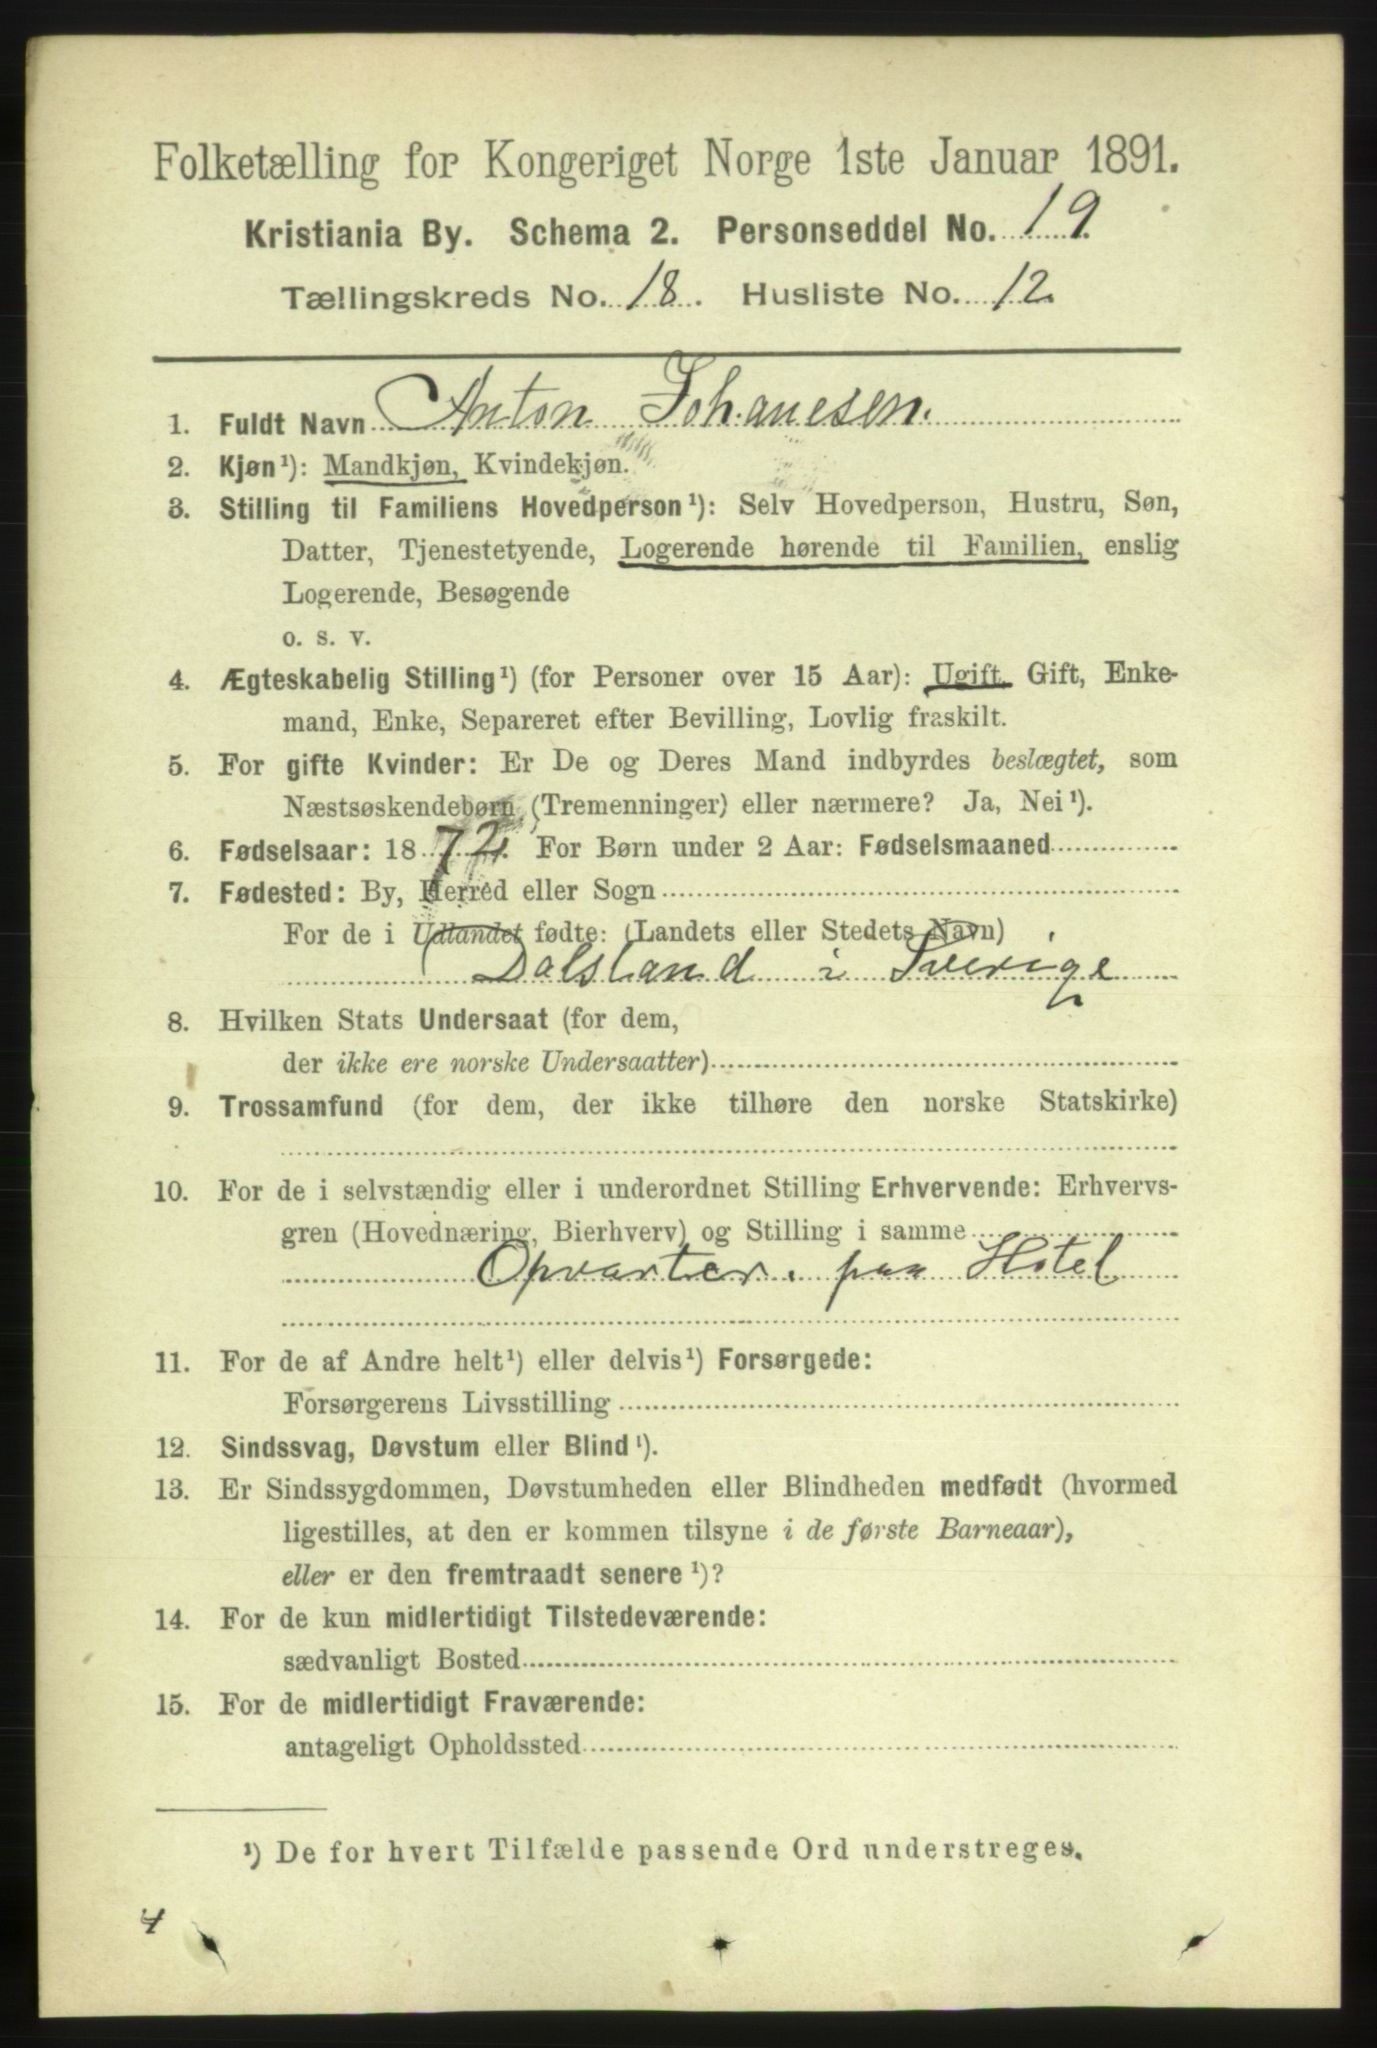 Folketælling for Kongeriget Norge 1ste Januar 1891.
Kristiania By. Schema 2. Personseddel No. 19.
Tællingskreds No. 18. Husliste No. 12.
1. Fuldt Navn Anton Johanesen.
2. Kjøn¹): Mandkjøn, Kvindekjøn.
3. Stilling til Familiens Hovedperson¹): Selv Hovedperson, Hustru, Søn,
Datter, Tjenestetyende, Logerende hørende til Familien, enslig
Logerende, Besøgende
o. s. v.
4. Ægteskabelig Stilling¹) (for Personer over 15 Aar): Ugift, Gift, Enke-
mand, Enke, Separeret efter Bevilling, Lovlig fraskilt.
5. For gifte Kvinder: Er De og Deres Mand indbyrdes beslægtet, som
Næstsøskendebørn (Tremenninger) eller nærmere? Ja, Nei¹).
6. Fødselsaar: 1872. For Børn under 2 Aar: Fødselsmaaned
7. Fødested: By, Herred eller Sogn
For de i Udlandet fødte: (Landets eller Stedets Navn)
Dalsland i Sverige
8. Hvilken Stats Undersaat (for dem,
der ikke ere norske Undersaatter)
9. Trossamfund (for dem, der ikke tilhøre den norske Statskirke)
10. For de i selvstændig eller i underordnet Stilling Erhvervende: Erhvervs-
gren (Hovednæring, Bierhverv) og Stilling i samme
Opvarter. paa Hotel
11. For de af Andre helt¹) eller delvis¹) Forsørgede:
Forsørgerens Livsstilling
12. Sindssvag, Døvstum eller Blind¹).
13. Er Sindssygdommen, Døvstumheden eller Blindheden medfødt (hvormed
ligestilles, at den er kommen tilsyne i de første Barneaar),
eller er den fremtraadt senere¹)?
14. For de kun midlertidigt Tilstedeværende:
sædvanligt Bosted
15. For de midlertidigt Fraværende:
antageligt Opholdssted
¹) De for hvert Tilfælde passende Ord understreges.
4